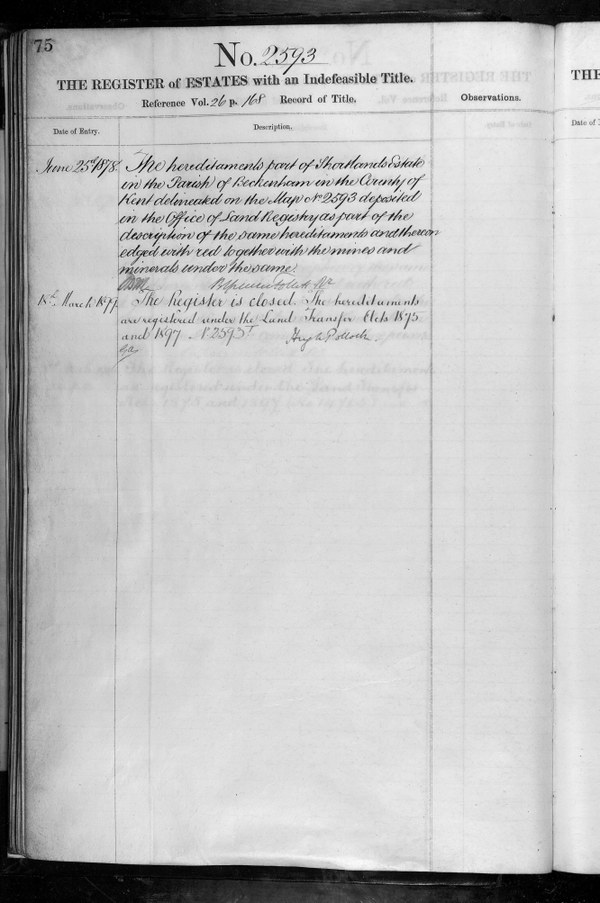 75
No. 2593
THE REGISTER of ESTATES with an Indefeasible Title.
Reference Vol. 26 p. 168 Record of Title.
Observations.
Date of Entry.
Description.
June 25th 1878.
The hereditaments part of Shortlands Estate
in the Parish of Beckenham in the County of
Kent delineated on the Map No 2593 deposited
in the Office of Land Registry as part of the
description of the same hereditaments and thereon
edged with red together with the mines and
minerals under the same.
18th March 1899
The Register is closed. The hereditaments
are registered under the Land Transfer Acts 1875
and 1897. No 2593
Hugh Pollock.
THE
Date of